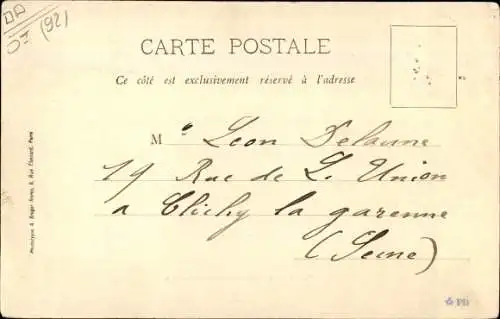 (92)
CARTE POSTALE
Ce côté est exclusivement réservé à l'adresse
M r Leon Delaune
19 Rue de L. Union
a Clichy la garenne
(Seine)